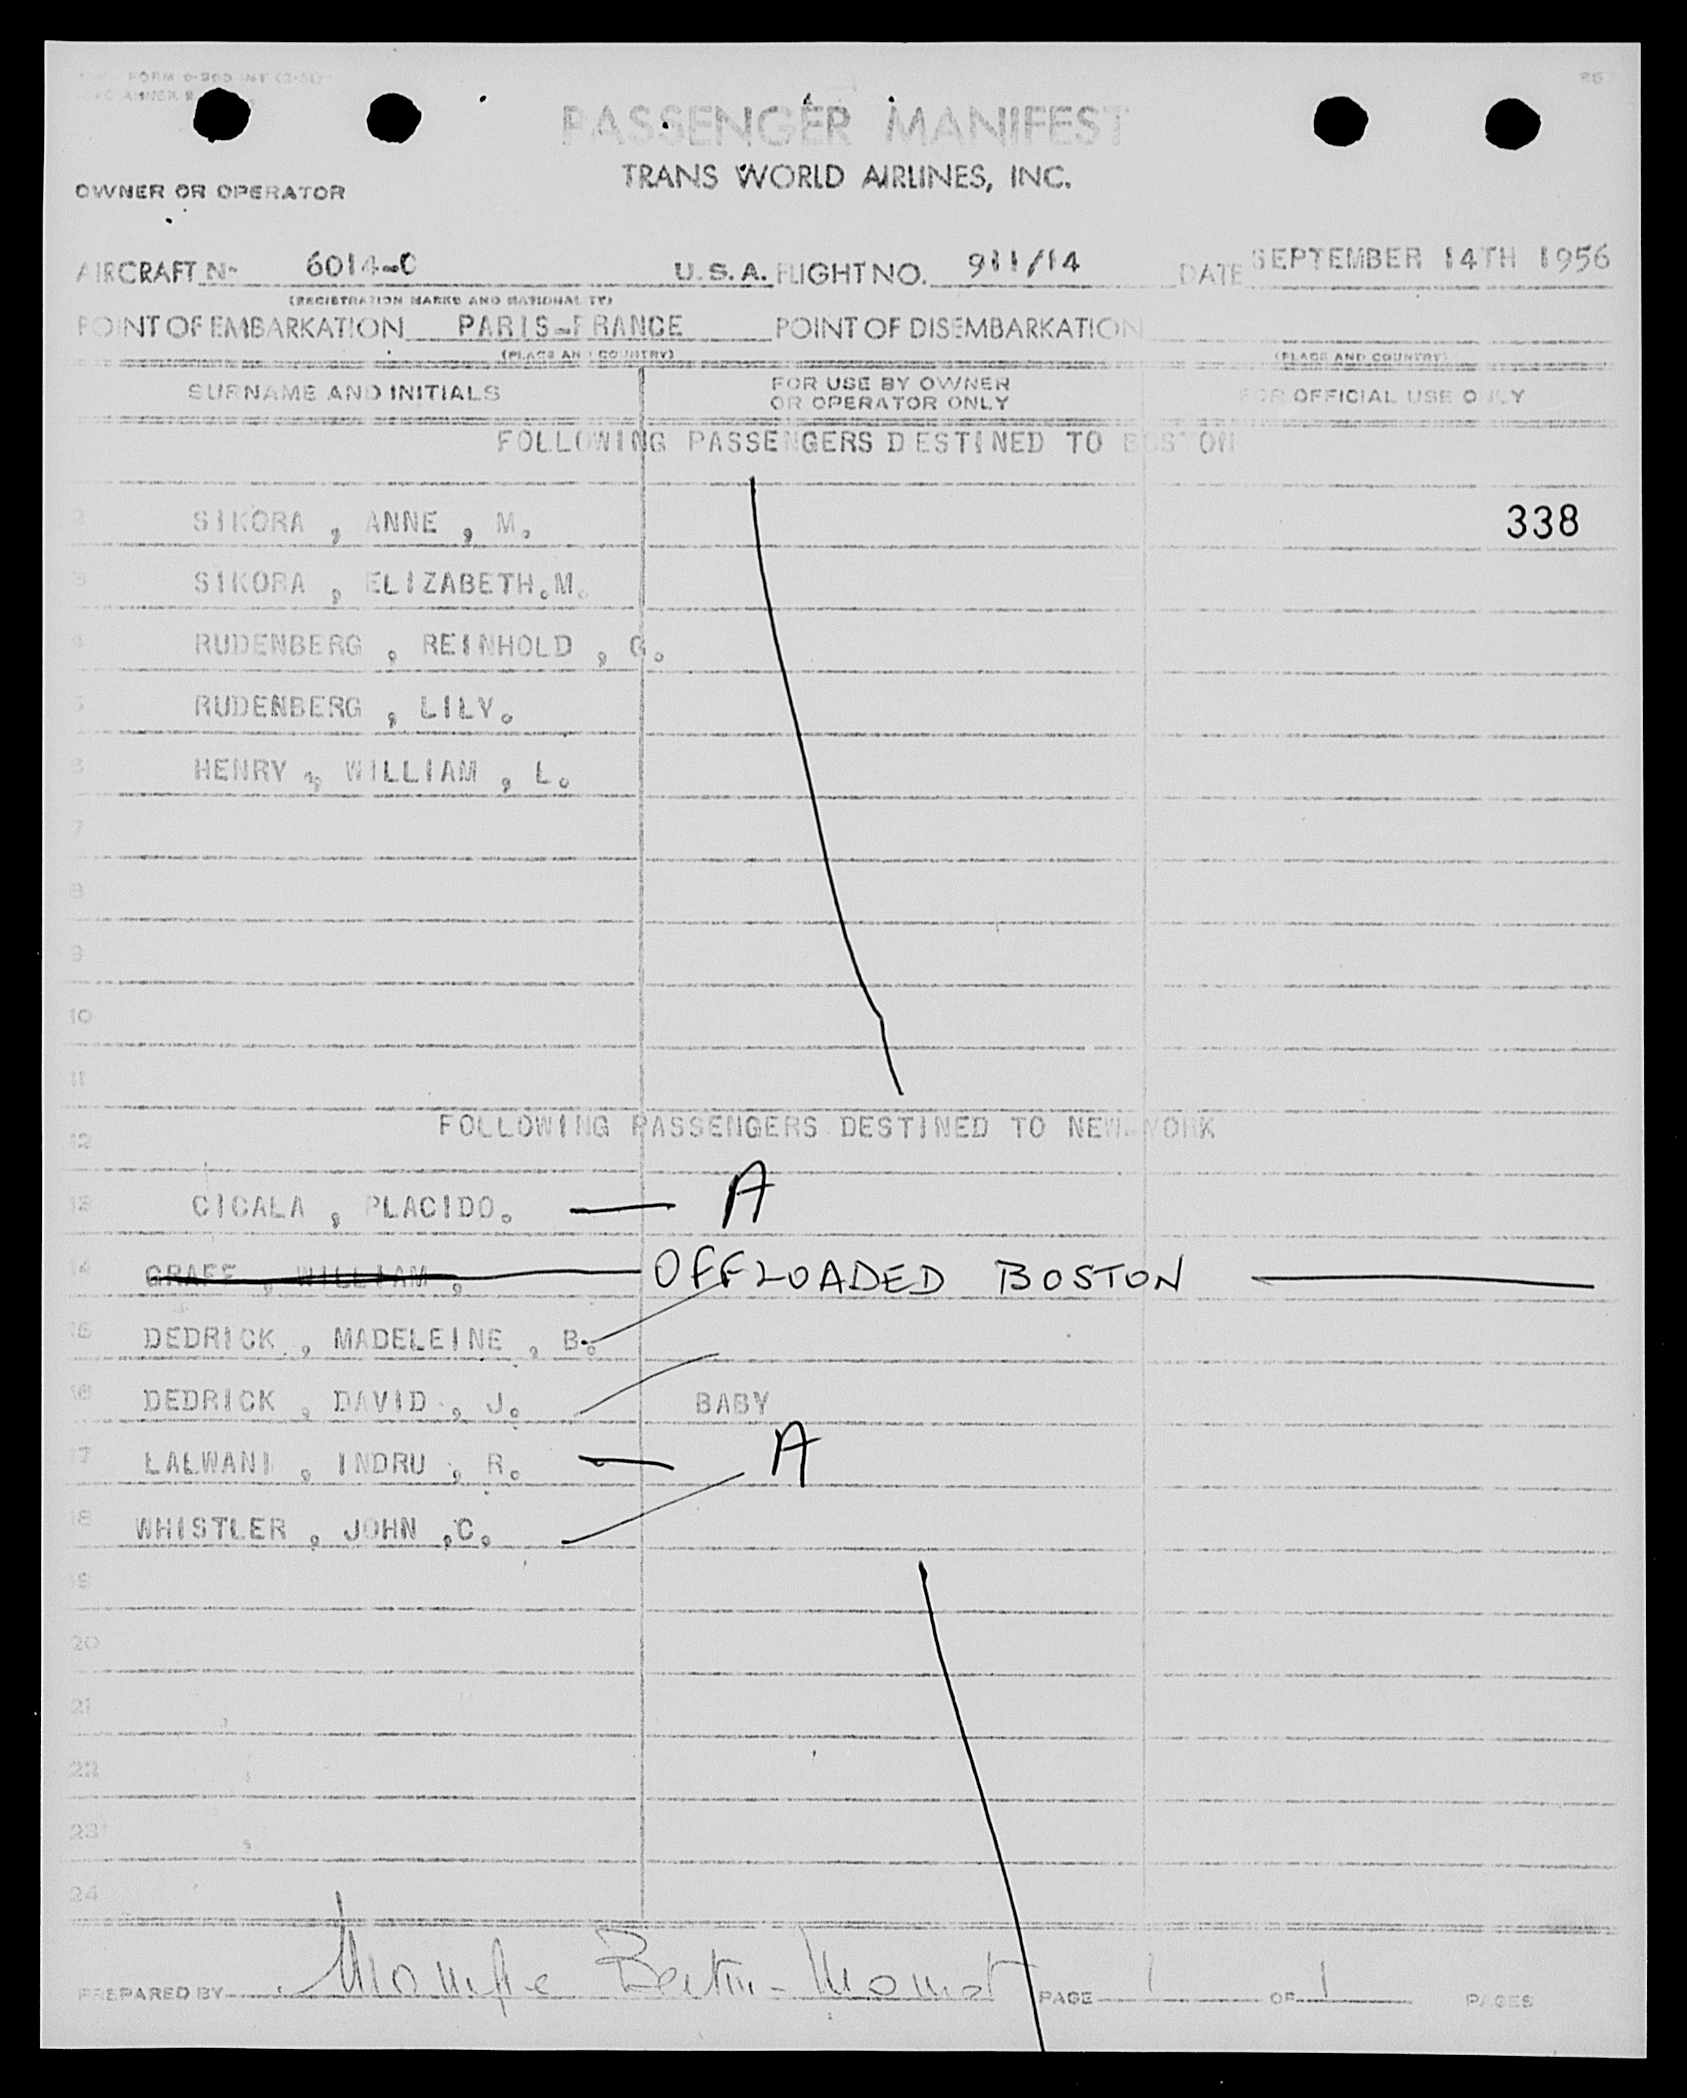 FORM
PASSENGER MANIFEST
TRANS WORLD AIRLINES, INC.
OWNER OR OPERATOR
AIRCRAFT No 6014-C U.S.A. FLIGHT NO. 911/14 DATE SEPTEMBER 14TH 1956
(REGISTRATION MARKS AND NATIONALITY)
POINT OF EMBARKATION PARIS-FRANCE POINT OF DISEMBARKATION
(PLACE AND COUNTRY) (PLACE AND COUNTRY)
SURNAME AND INITIALS FOR USE BY OWNER OR OPERATOR ONLY FOR OFFICIAL USE ONLY
FOLLOWING PASSENGERS DESTINED TO BOSTON
2 SIKORA , ANNE , M. 338
3 SIKORA , ELIZABETH.M.
4 RUDENBERG , REINHOLD , G.
5 RUDENBERG , LILY.
6 HENRY , WILLIAM , L.
7
8
9
10
11
12 FOLLOWING PASSENGERS DESTINED TO NEW-YORK
13 CICALA , PLACIDO. — A
14 GRAFF , WILLIAM , OFFLOADED BOSTON
15 DEDRICK , MADELEINE , B.
16 DEDRICK , DAVID , J. BABY
17 LALWANI , INDRU , R. — A
18 WHISTLER , JOHN ,C.
19
20
21
22
23
24
PREPARED BY PAGE 1 OF 1 PAGES